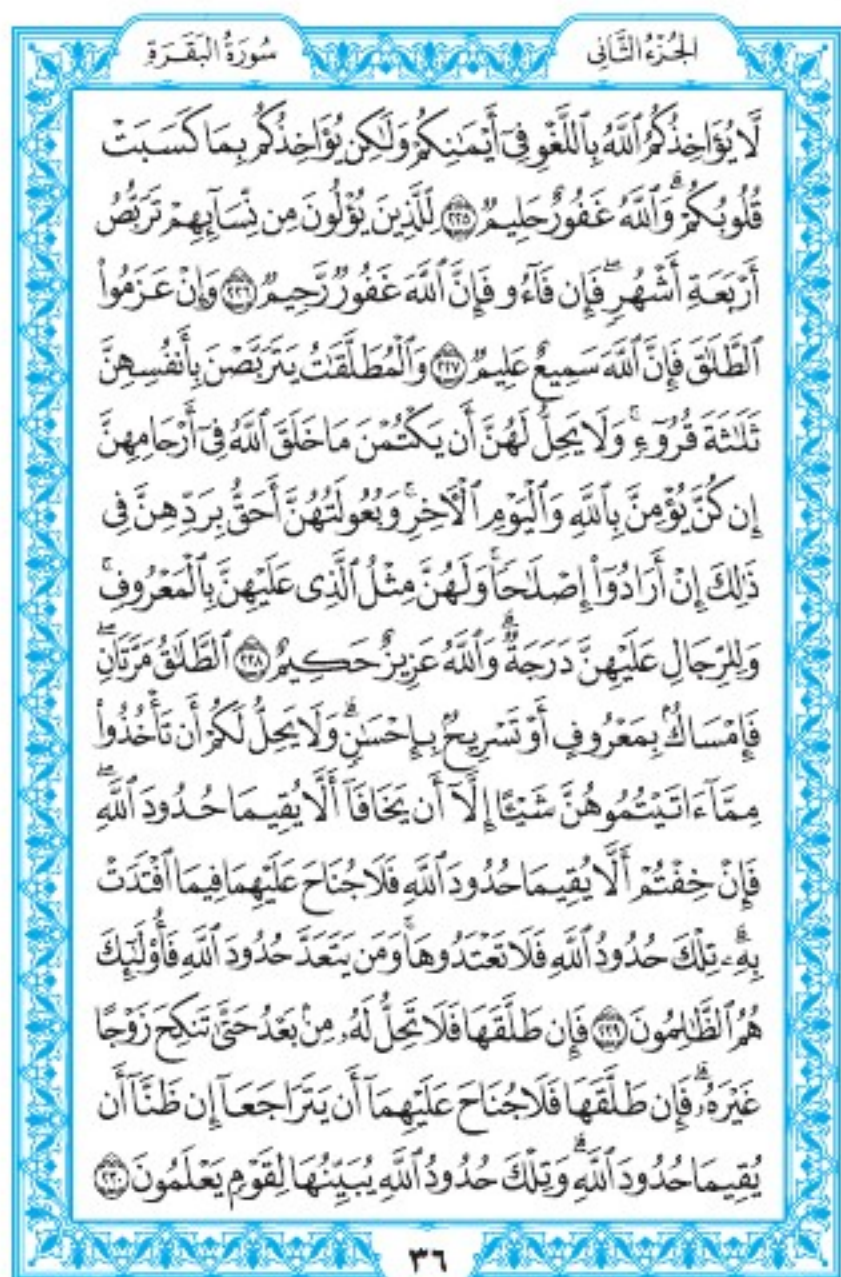 الجُزْءُ الثَّانِى
سُورَةُ البَقَرَةِ
لَّا يُؤَاخِذُكُمُ ٱللَّهُ بِٱللَّغْوِ فِىٓ أَيْمَٰنِكُمْ وَلَٰكِن يُؤَاخِذُكُم بِمَا كَسَبَتْ
قُلُوبُكُمْ ۗ وَٱللَّهُ غَفُورٌ حَلِيمٌ ۝٢٢٥ لِّلَّذِينَ يُؤْلُونَ مِن نِّسَآئِهِمْ تَرَبُّصُ
أَرْبَعَةِ أَشْهُرٍ ۖ فَإِن فَآءُو فَإِنَّ ٱللَّهَ غَفُورٌ رَّحِيمٌ ۝٢٢٦ وَإِنْ عَزَمُوا۟
ٱلطَّلَٰقَ فَإِنَّ ٱللَّهَ سَمِيعٌ عَلِيمٌ ۝٢٢٧ وَٱلْمُطَلَّقَٰتُ يَتَرَبَّصْنَ بِأَنفُسِهِنَّ
ثَلَٰثَةَ قُرُوٓءٍ ۚ وَلَا يَحِلُّ لَهُنَّ أَن يَكْتُمْنَ مَا خَلَقَ ٱللَّهُ فِىٓ أَرْحَامِهِنَّ
إِن كُنَّ يُؤْمِنَّ بِٱللَّهِ وَٱلْيَوْمِ ٱلْءَاخِرِ ۚ وَبُعُولَتُهُنَّ أَحَقُّ بِرَدِّهِنَّ فِى
ذَٰلِكَ إِنْ أَرَادُوٓا۟ إِصْلَٰحًا ۚ وَلَهُنَّ مِثْلُ ٱلَّذِى عَلَيْهِنَّ بِٱلْمَعْرُوفِ ۚ
وَلِلرِّجَالِ عَلَيْهِنَّ دَرَجَةٌ ۗ وَٱللَّهُ عَزِيزٌ حَكِيمٌ ۝٢٢٨ ٱلطَّلَٰقُ مَرَّتَانِ ۖ
فَإِمْسَاكٌۢ بِمَعْرُوفٍ أَوْ تَسْرِيحٌۢ بِإِحْسَٰنٍ ۗ وَلَا يَحِلُّ لَكُمْ أَن تَأْخُذُوا۟
مِمَّآ ءَاتَيْتُمُوهُنَّ شَيْـًٔا إِلَّآ أَن يَخَافَآ أَلَّا يُقِيمَا حُدُودَ ٱللَّهِ ۖ
فَإِنْ خِفْتُمْ أَلَّا يُقِيمَا حُدُودَ ٱللَّهِ فَلَا جُنَاحَ عَلَيْهِمَا فِيمَا ٱفْتَدَتْ
بِهِۦ ۗ تِلْكَ حُدُودُ ٱللَّهِ فَلَا تَعْتَدُوهَا ۚ وَمَن يَتَعَدَّ حُدُودَ ٱللَّهِ فَأُو۟لَٰٓئِكَ
هُمُ ٱلظَّٰلِمُونَ ۝٢٢٩ فَإِن طَلَّقَهَا فَلَا تَحِلُّ لَهُۥ مِنۢ بَعْدُ حَتَّىٰ تَنكِحَ زَوْجًا
غَيْرَهُۥ ۗ فَإِن طَلَّقَهَا فَلَا جُنَاحَ عَلَيْهِمَآ أَن يَتَرَاجَعَآ إِن ظَنَّآ أَن
يُقِيمَا حُدُودَ ٱللَّهِ ۗ وَتِلْكَ حُدُودُ ٱللَّهِ يُبَيِّنُهَا لِقَوْمٍ يَعْلَمُونَ ۝٢٣٠
٣٦